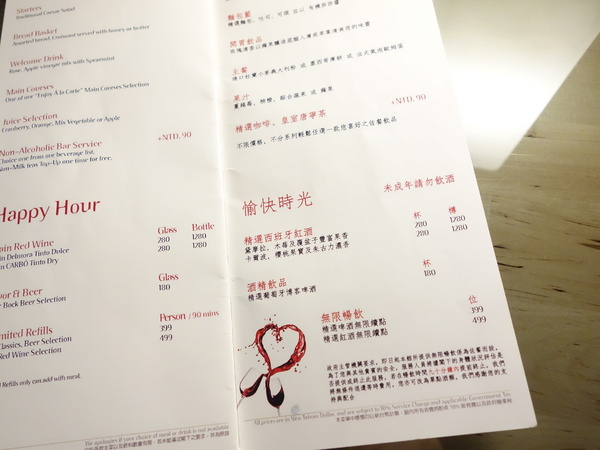 Starters
Traditional Caesar Salad
Bread Basket
Assorted bread, Croissant served with honey or butter
Welcome Drink
Rose, Apple vinegar mix with Spearmint
Main Courses
One of our "Enjoy À la Carte" Main Courses Selection
Juice Selection
Cranberry, Orange, Mix Vegetable or Apple
+NTD. 90
Non-Alcoholic Bar Service
Choice one from our beverage list.
Non-Milk teas Top-Up one time for free.
Happy Hour
Glass Bottle
ain Red Wine 280 1280
n Delmora Tinto Dulce 280 1280
n CARBÓ Tinto Dry
Glass
or & Beer 180
Back Beer Selection
Person / 90 mins
mited Refills 399
Classics, Beer Selection 499
Red Wine Selection
Refills only can add with meal.
The apologies if your choice of meal or drink is not available
麵包籃
開胃飲品
主餐
果汁
蔓越莓、柳橙、綜合蔬果 或 蘋果
+NTD. 90
精選咖啡、皇室唐寧茶
不限價格，不分系列輕鬆任選一款您喜好之佐餐飲品
愉快時光
未成年請勿飲酒
杯 樽
精選西班牙紅酒 280 1280
黛摩拉，木莓及覆盆子豐富果香 280 1280
卡爾波，櫻桃果實及朱古力濃香
杯
酒精飲品 180
精選葡萄牙博客啤酒
位
無限暢飲 399
精選啤酒無限續點 499
精選紅酒無限續點
All prices are in New Taiwan Dollar, and are subject to 10% Service Charge and applicable Government Tax.